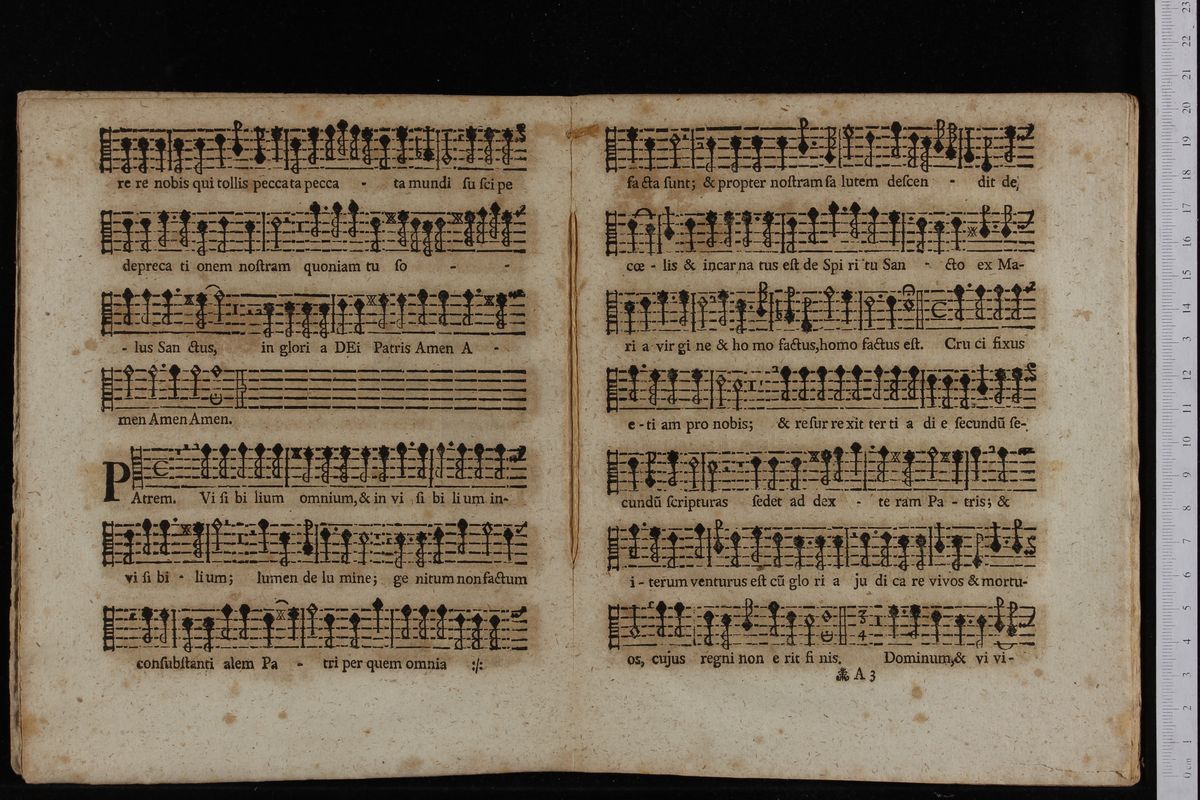 re re nobis qui tollis peccata pecca - ta mundi ſu ſci pe
depreca ti onem noſtram quoniam tu ſo - - -
- lus San ctus, in glori a DEi Patris Amen A -
men Amen Amen.
PAtrem. Vi ſi bi lium omnium,& in vi ſi bi li um in-
vi ſi bi - li um; lumen de lu mine; ge nitum non factum
conſubſtanti alem Pa - tri per quem omnia :/:
fa cta ſunt; & propter noſtram ſa lutem deſcen - dit de,
cœ - lis & incar na tus eſt de Spi ri tu San - cto ex Ma-
ri a vir gi ne & ho mo factus,homo factus eſt. Cru ci fixus
e - ti am pro nobis; & re ſur re xit ter ti a di e ſecundũ ſe-
cundũ ſcripturas ſedet ad dex - te ram Pa - tris; &
i - terum venturus eſt cũ glo ri a ju di ca re vivos & mortu-
os, cujus regni non e rit fi nis. Dominum,& vi vi-
A 3
23
22
21
20
19
18
17
16
15
14
13
12
11
10
9
8
7
6
5
4
3
2
1
0 cm